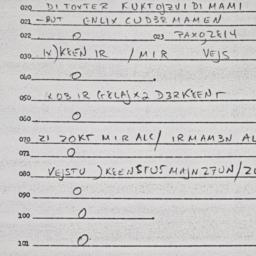 020 DI TOXTER KUKTOJZVI DI MAMI
021 -BUT ENLIX CUD3R MAMEN
022 O 023 7AXOZEI4
030 IX)KEEN IR / MIR VEJS
040 O
050 KOB IR GELAJX2 D3RKEENT
060 O
070 ZI ZOKT MIR ALC/ IRMAM3N AL
071 O
080 VEJSTU )KEENSTUS MAJNZ7UN/ZU
090 O
100 O
101 O